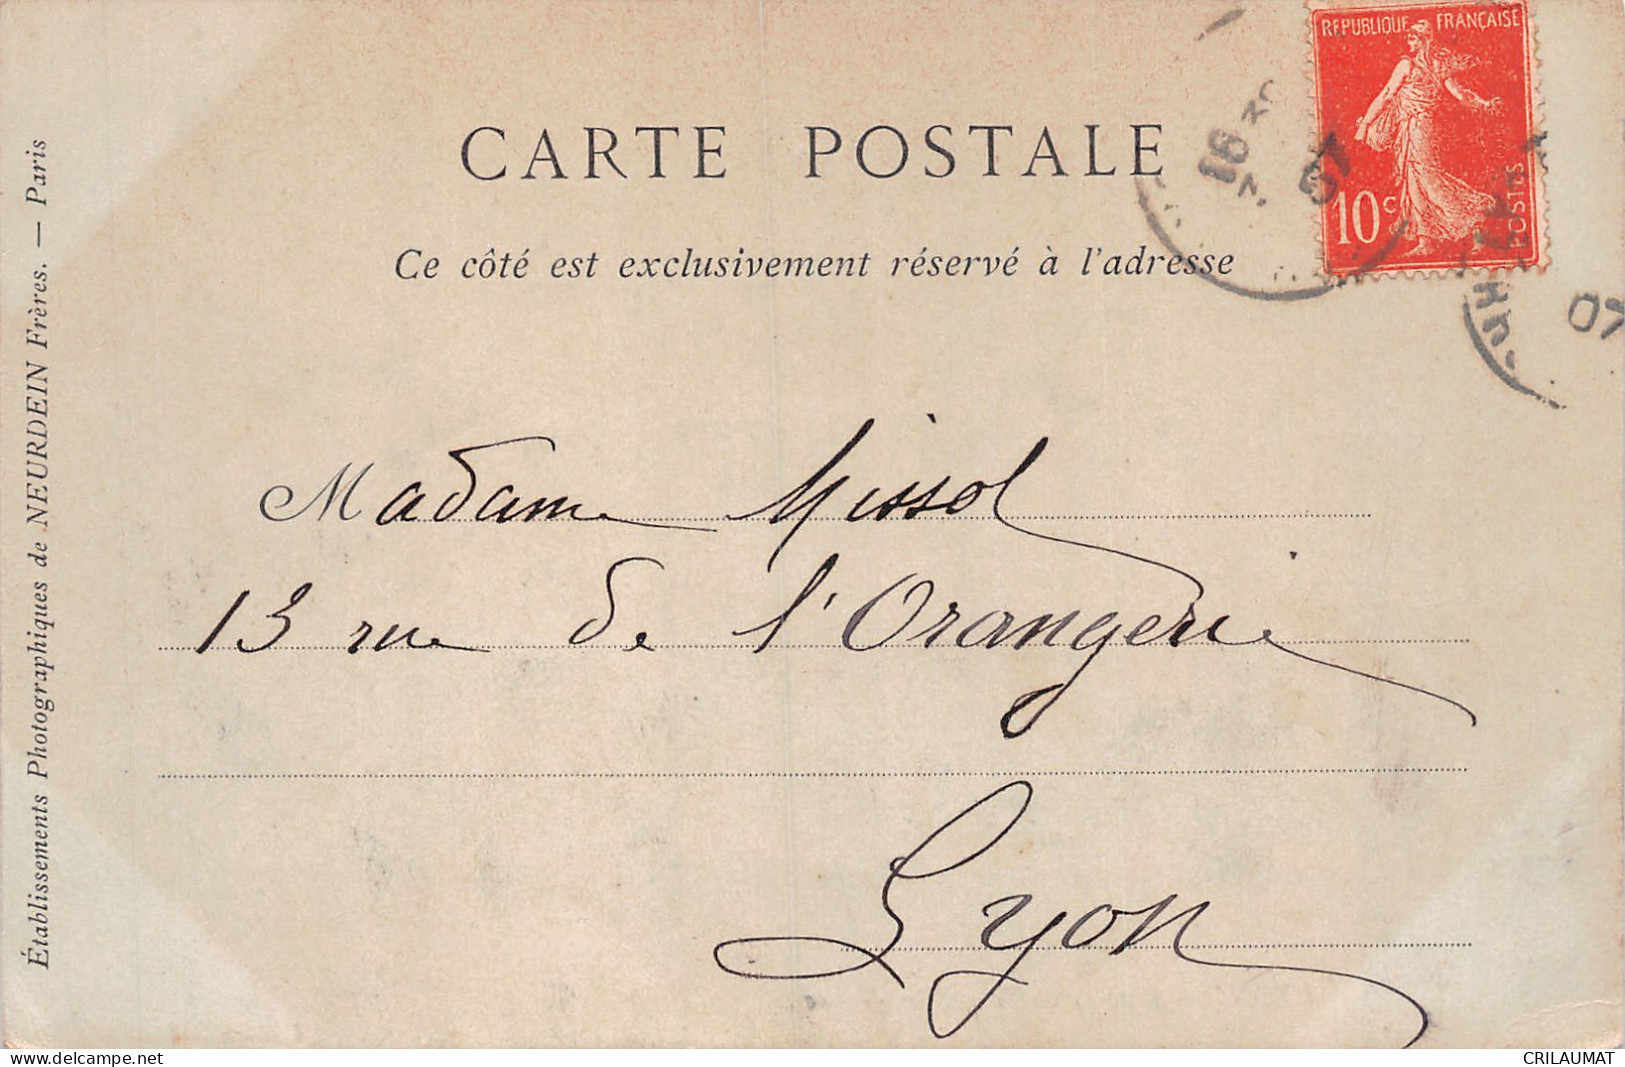 CARTE POSTALE
Ce côté est exclusivement réservé à l'adresse
REPUBLIQUE FRANÇAISE
10c
POSTES
07
07
Madame Missol
13 rue de l'Orangerie
Lyon
Établissements Photographiques de NEURDEIN Frères. — Paris
www.delcampe.net
CRILAUMAT